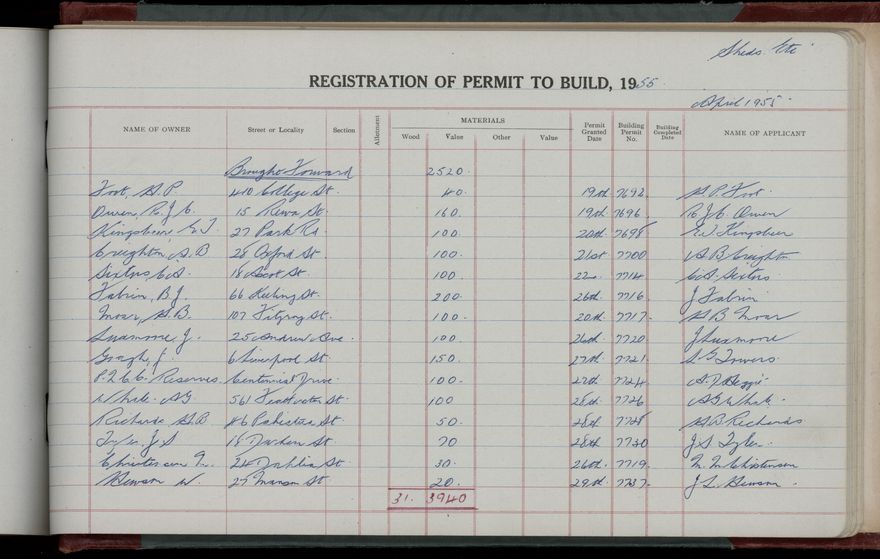 Sheds Etc
REGISTRATION OF PERMIT TO BUILD, 1955.
April 1955.
NAME OF OWNER Street or Locality Section Allotment MATERIALS Wood Value Other Value Permit Granted Date Building Permit No. Building Completed Date NAME OF APPLICANT
Brought Forward 2520.
Foot, H.P. 410 College St. 40. 19th. 7692. H.P. Foot.
Owen, R.J.C. 15 Rewa St. 160. 19th 7696. R.J.C. Owen
27 Park Rd. 100. 20th. 7698
Creighton, A.B 28 Oxford St. 100. 21st 7700 A.B. Creighton
18 Scot St. 100. 7714
Fabrin, B.J. 66 Keeling St. 200. 26th. 7716. J Fabrin
Moar, H.B. 107 Fitzroy St. 100. 20th 7717. H B Moar
Luxmoore, J. 25 Andrew Ave. 100. 26th 7720 J Luxmoore
6 Liverpool St. 150. 27th 7721. Towers.
Reserves. Centennial Drive. 100. 27th 7724
White. A.G. 561 Featherston St. 100 28th. 7726 A G White.
Richards H.B 46 St. 50. 28th 7728 H.B Richards
Tyler, J S 18 St. 70 28th 7730 J.S Tyler.
Christensen 24 Dahlia St. 30. 26th. 7719. Christensen
Henson W. 27 Manson St 20. 29th 7737. J L. Henson.
31. 3940